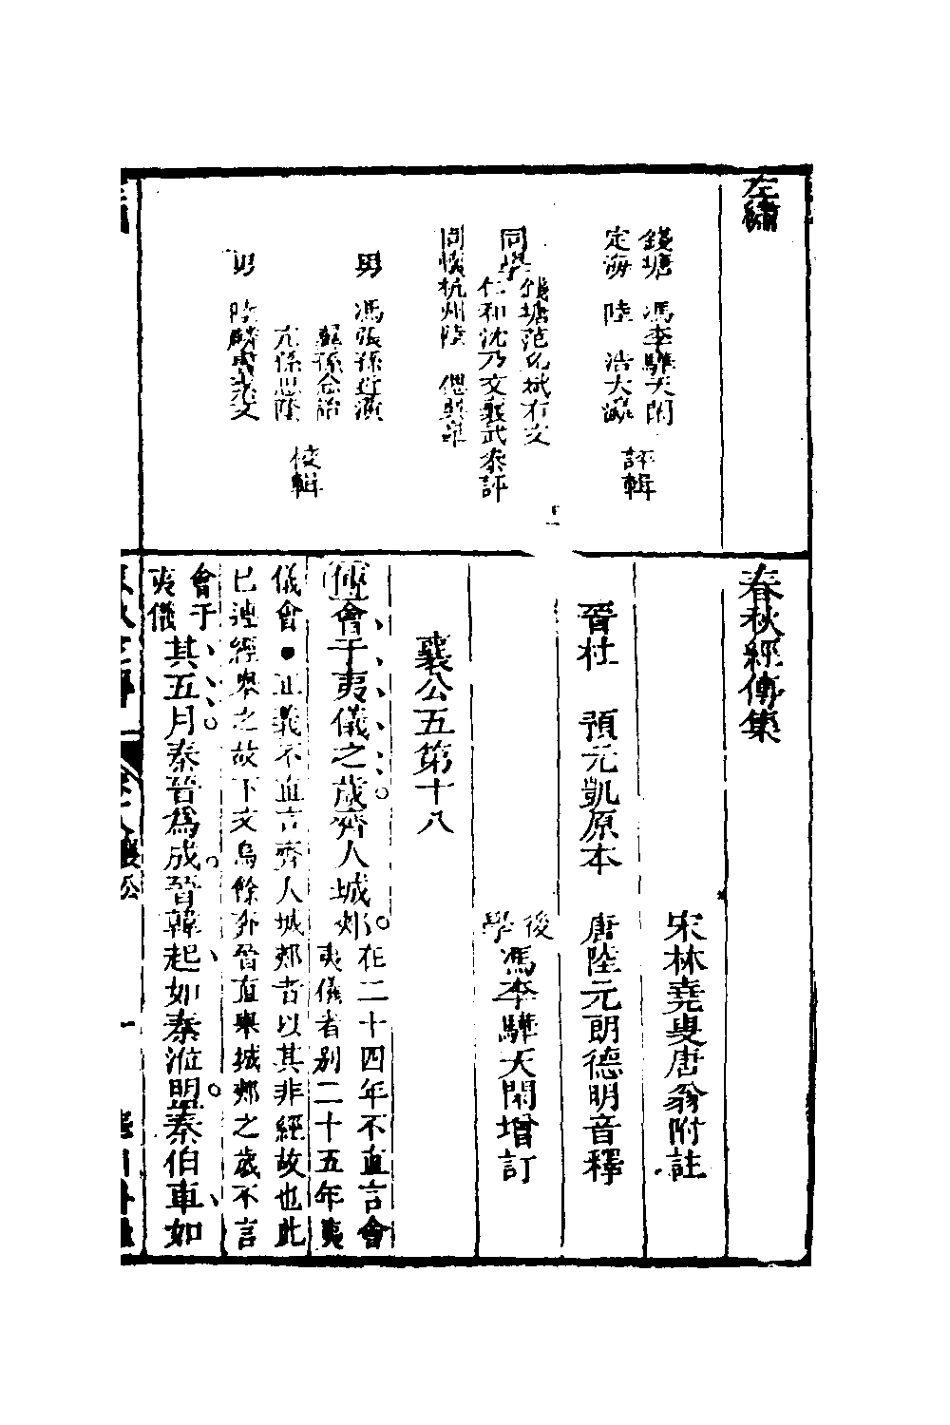 左繡
錢塘 馮李驊天閑
定海 陸 浩大瀛
評輯
同學
錢塘范允斌右文
仁和沈乃文襄武
同懷杭州陸 偲
叅評
男 馮張孫近潢
孫念詒
孫思陸
男 陸麟
校輯
春秋經傳集
宋林堯叟唐翁附註
晉杜 預元凱原本 唐陸元朗德明音釋
後學馮李驊天閑增訂
襄公五第十八
傳會于夷儀之歲齊人城郟
在二十四年不直言會
夷儀者別二十五年夷
儀會●正義不直言齊人城郟者以其非經故也此
已違經舉之故下文烏餘奔晉直舉城郟之歲不言
會于
夷儀
其五月秦晉為成晉韓起如秦涖盟秦伯車如